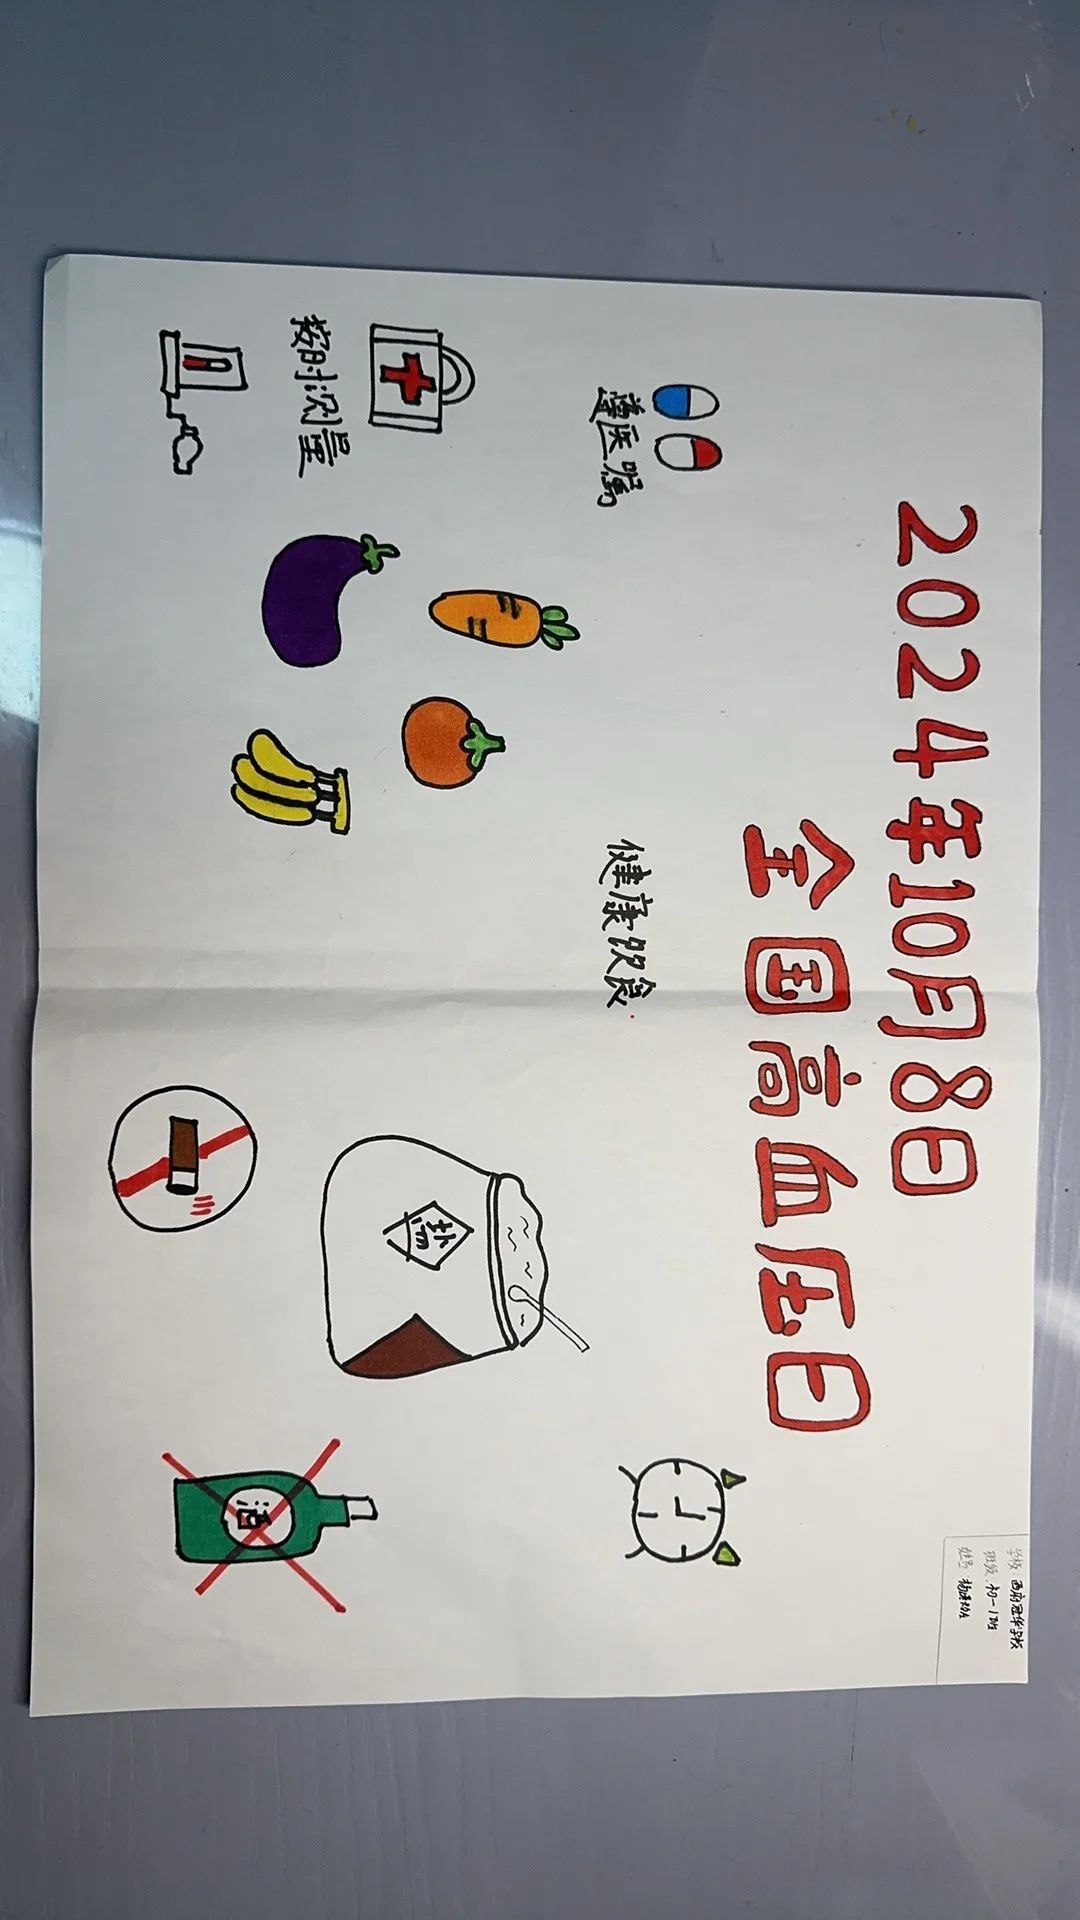 2024年10月8日
全国高血压日
学校：西府冠华学校
班级：初一1班
姓名：
遵医嘱
健康饮食
按时测量
盐
酒